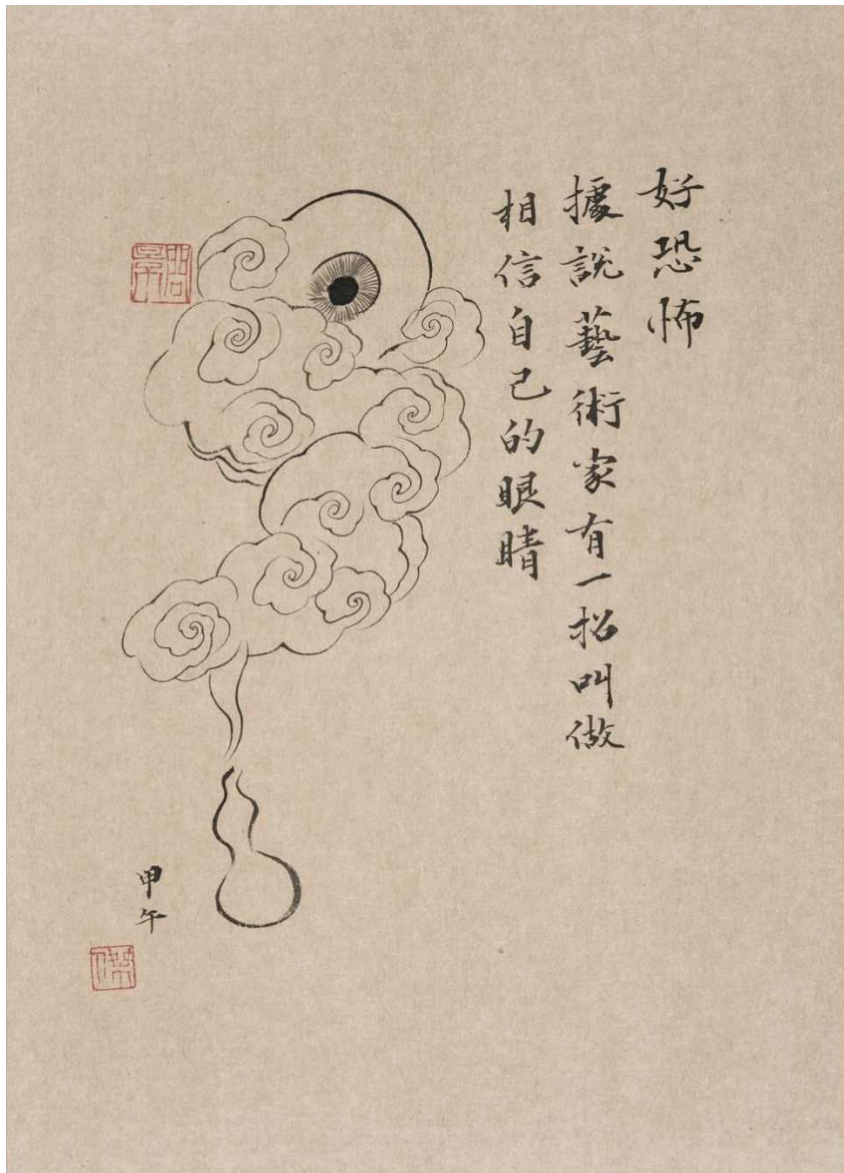 好恐怖
據說藝術家有一招叫做
相信自己的眼睛
甲午